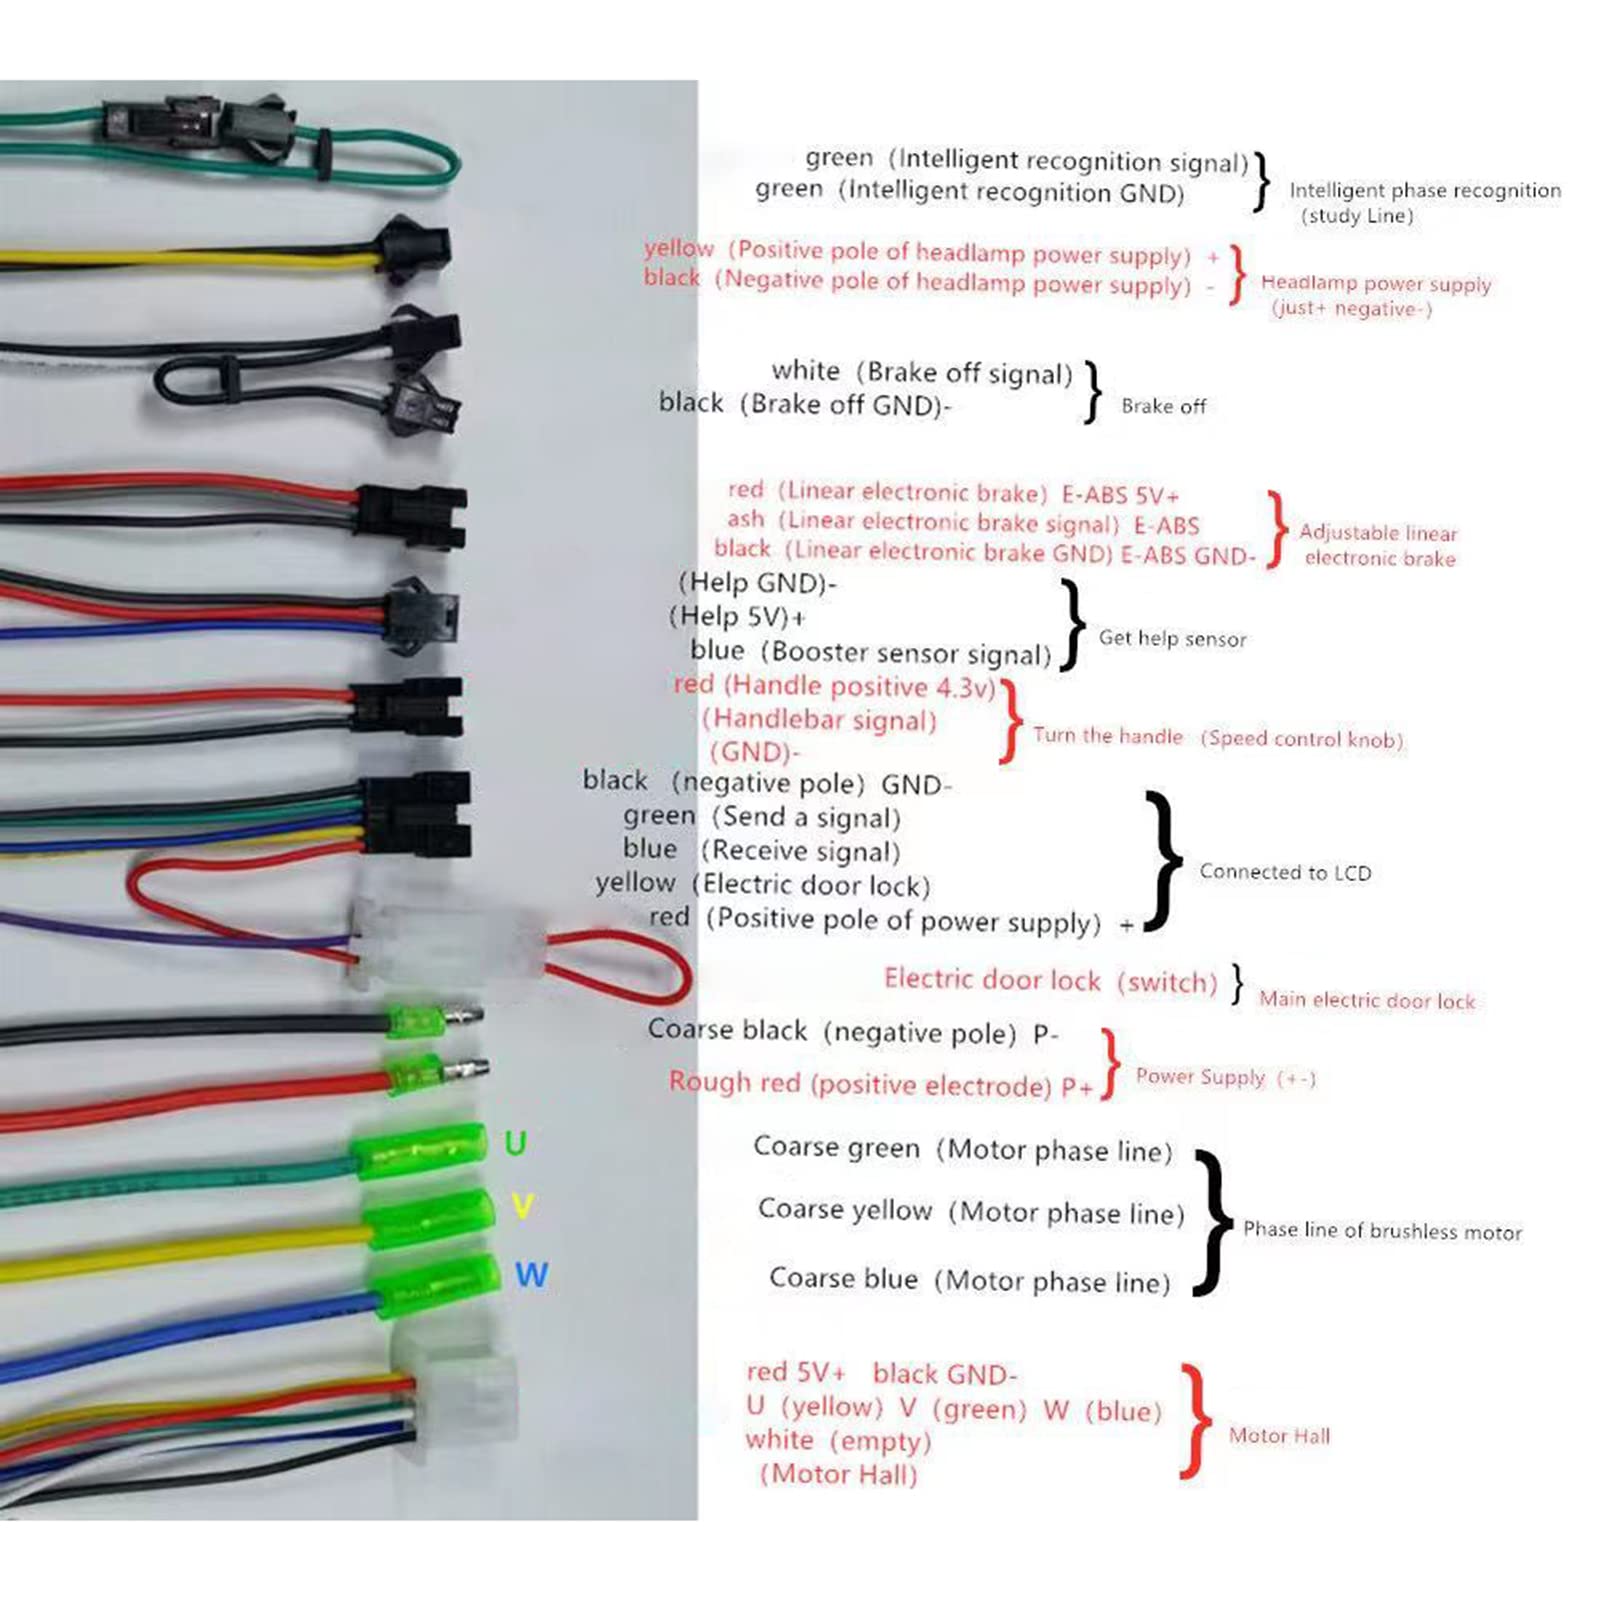 green (Intelligent recognition signal)
green (Intelligent recognition GND)
Intelligent phase recognition
(study Line)
yellow (Positive pole of headlamp power supply) +
black (Negative pole of headlamp power supply) -
Headlamp power supply
(just+ negative-)
white (Brake off signal)
black (Brake off GND)-
Brake off
red (Linear electronic brake) E-ABS 5V+
ash (Linear electronic brake signal) E-ABS
black (Linear electronic brake GND) E-ABS GND-
Adjustable linear
electronic brake
(Help GND)-
(Help 5V)+
blue (Booster sensor signal)
Get help sensor
red (Handle positive 4.3v)
(Handlebar signal)
(GND)-
Turn the handle (Speed control knob)
black (negative pole) GND-
green (Send a signal)
blue (Receive signal)
yellow (Electric door lock)
red (Positive pole of power supply) +
Connected to LCD
Electric door lock (switch)
Main electric door lock
Coarse black (negative pole) P-
Rough red (positive electrode) P+
Power Supply (+-)
U
V
W
Coarse green (Motor phase line)
Coarse yellow (Motor phase line)
Coarse blue (Motor phase line)
Phase line of brushless motor
red 5V+ black GND-
U (yellow) V (green) W (blue)
white (empty)
(Motor Hall)
Motor Hall